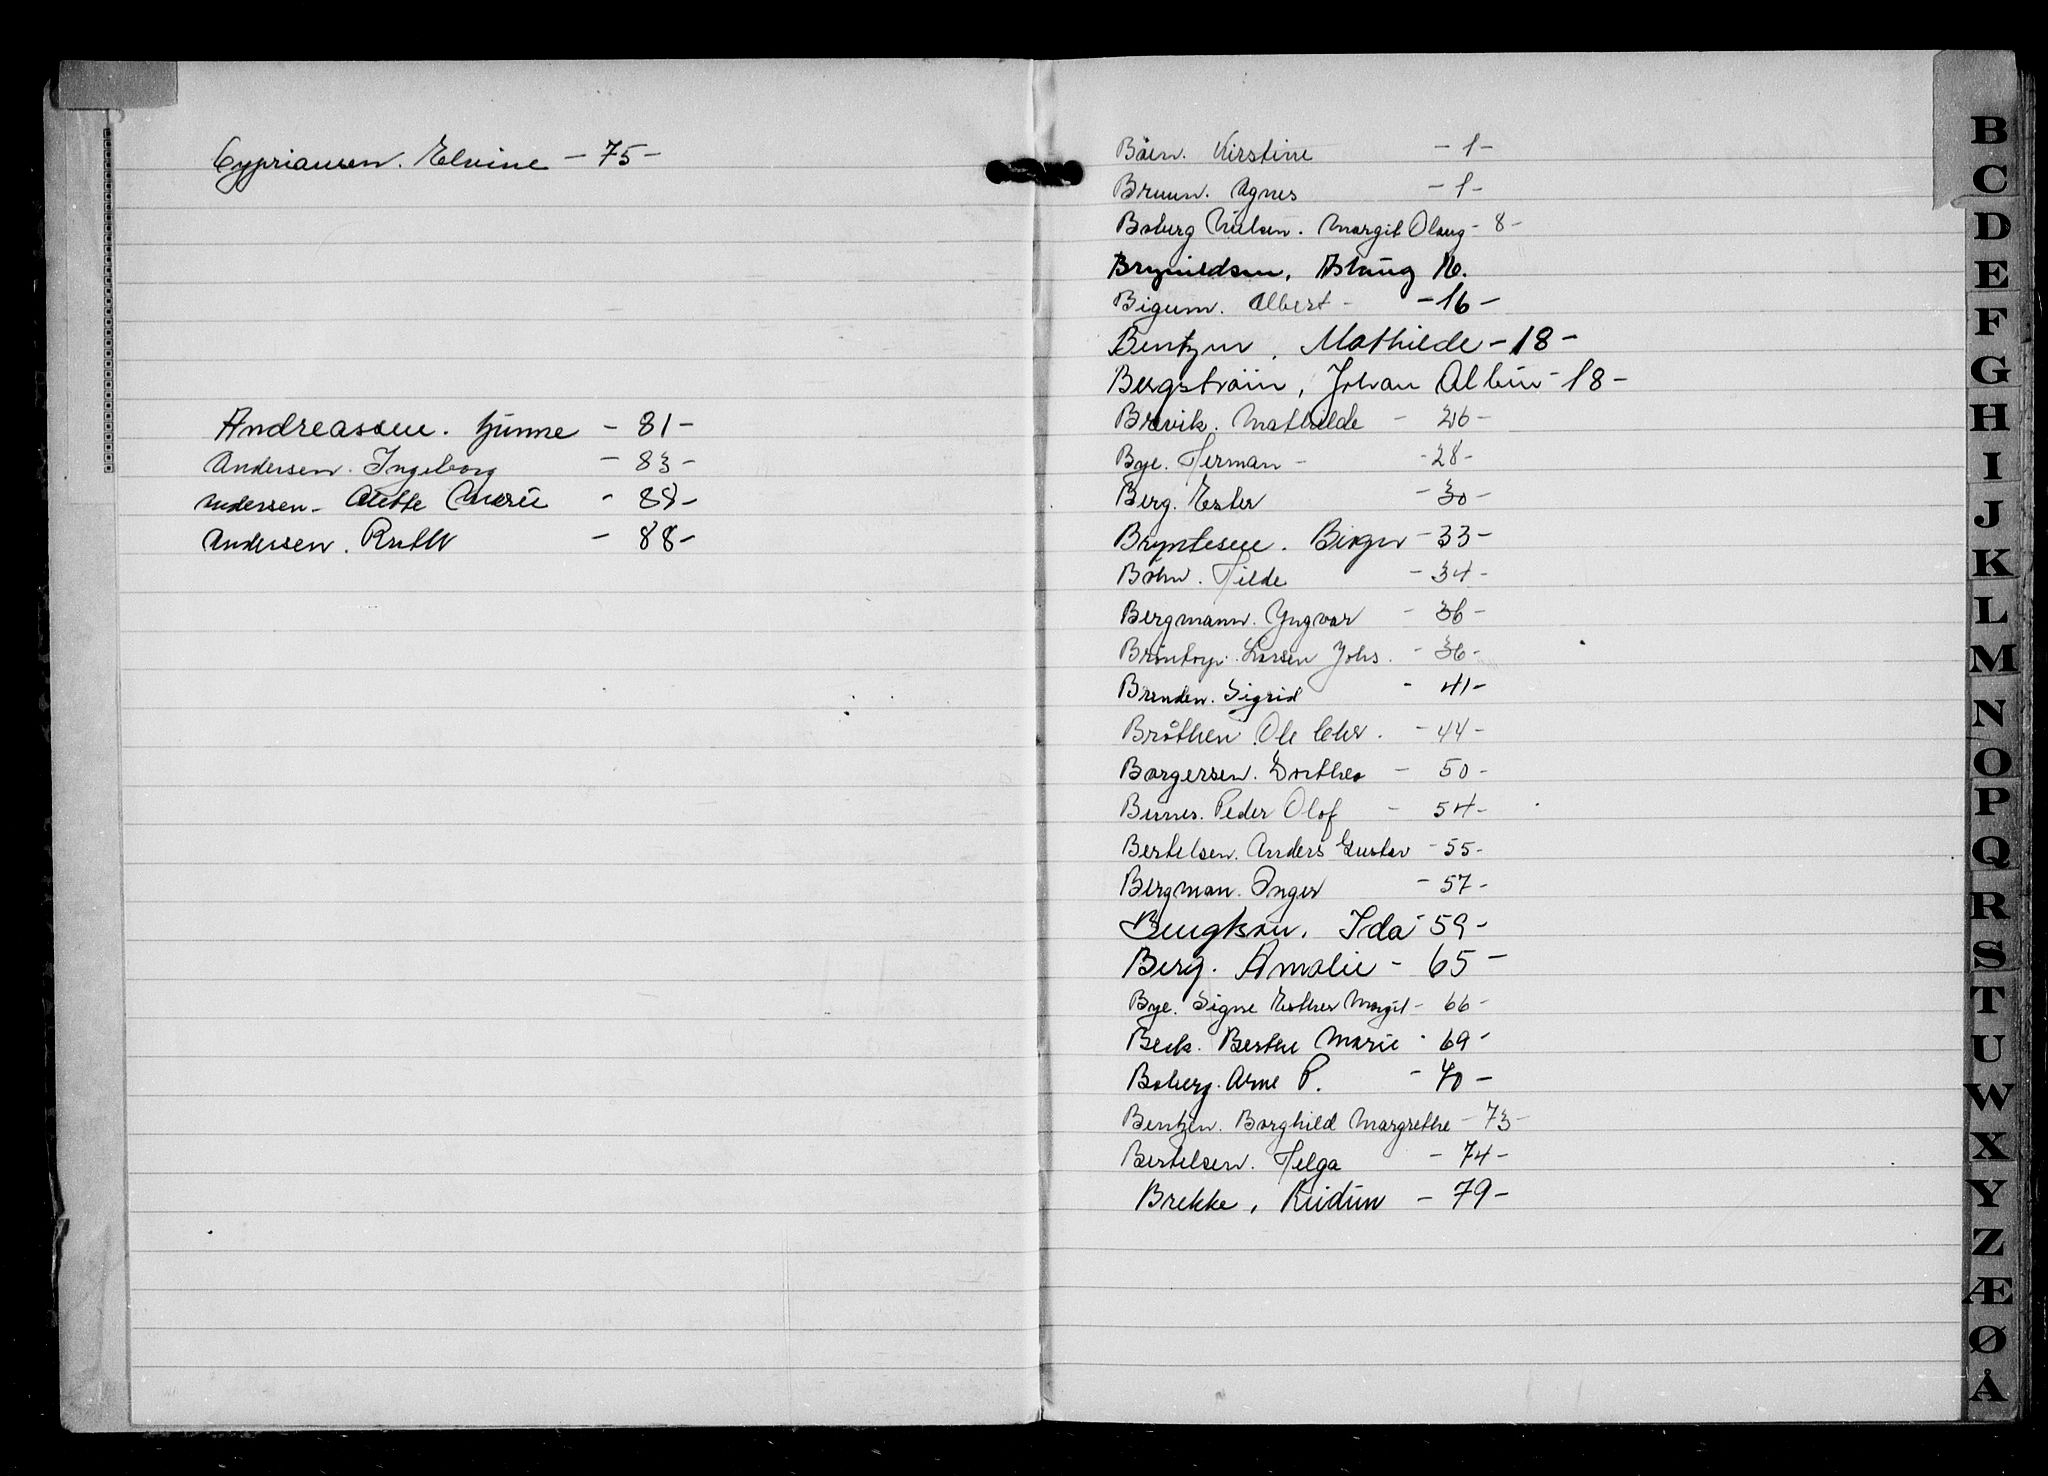 Cypriansen. Elvine - 75 -
Andreassen. Gunne - 81 -
Andersen. Ingeborg - 83 -
Andersen - Alette Marie - 88 -
Andersen. Ruth - 88 -
Bøen. Kirstine - 1 -
Bruun. Agnes - 1 -
Boberg Nielsen. Margit Olaug - 8 -
Brynildsen, Aslaug 16.
Bigum. Albert - - 16 -
Bentzen, Mathilde - 18 -
Bergstrøm, Johan Albin - 18 -
Brevik. Mathilde - 26 -
Bye. Herman - - 28 -
Berg. Ester - 30 -
Bryntesen. Birger - 33 -
Bøhn. Hilde - 34 -
Bergmann. Yngvar - 36 -
Brøntorp. Larsen Johs. - 36 -
Brenden. Sigrid - 41 -
Bråthen. Ole Chr. - 44 -
Borgersen. Dorthea - 50 -
Peder Olof - 54 -
Bertelsen. Anders Gustav - 55 -
Bergman. Inger - 57 -
Bengtson. Ida - 59 -
Berg. Amalie - 65 -
Bye. Signe Esther Margit - 66 -
Beck. Berthe Marie - 69 -
Boberg. Arne P. - 70 -
Bentzen. Borghild Margrethe - 73 -
Bertelsen. Helga - 74 -
Brekke, Guidun - 79 -
B
C
D
E
F
G
H
I
J
K
L
M
N
O
P
Q
R
S
T
U
W
X
Y
Z
Æ
Ø
Å